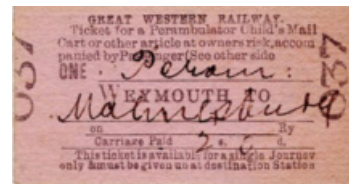 GREAT WESTERN RAILWAY.
Ticket for a Perambulator Child's Mail
Cart or other article at owners risk, accom
panied by Passenger (See other side
ONE Peram:
WEYMOUTH TO
Malmesbury
on Ry
Carriage Paid 2 s. 0 d.
This ticket is available for a single Journey
only & must be given up at destination Station
037
037